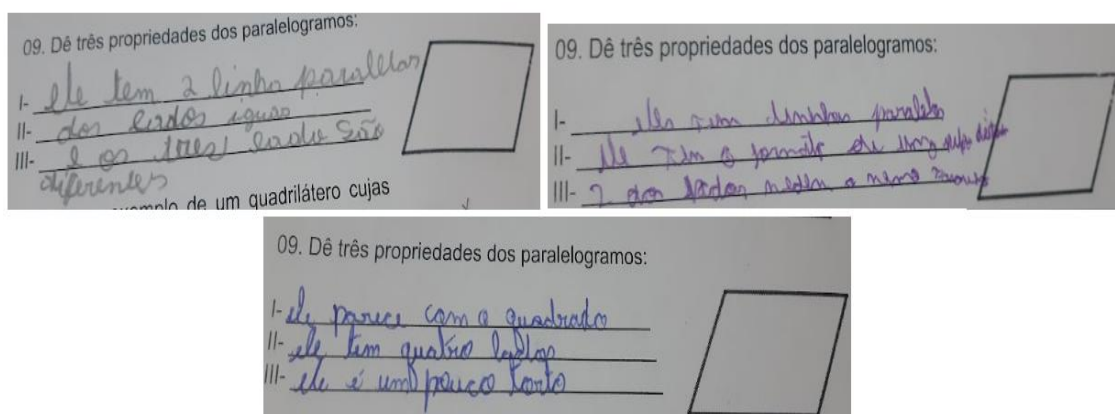 09. Dê três propriedades dos paralelogramos:
I- ele tem 2 linha paralelas
II- dos lados iguas
III- e os tres lado são
diferentes
de um quadrilátero cujas
09. Dê três propriedades dos paralelogramos:
I- paralela
II- ele tem o formato de
III- 2 dos lados medem o mesmo
09. Dê três propriedades dos paralelogramos:
I- ele parece com o quadrado
II- ele tem quatro lados
III- ele é um pouco torto